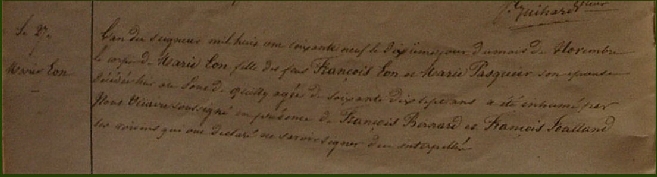 J. Guihard
Le 27
L'an du Seigneur mil huit cent soixante neuf le dixième jour du mois de Novembre
Marie Eon
le corps de Marie Eon fille des feus François Eon et Marie Pasquier son épouse
décédée hier au bourg de Quilly agée de soixante dix sept ans a été inhumé par
Nous Vicaire soussigné en présence de François Bernard et François Halland
les soivens qui ont déclaré ne savoir signer de ce interpellés